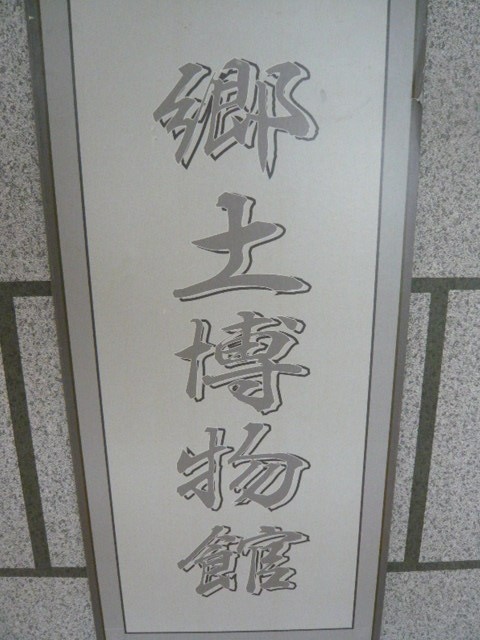 郷土博物館